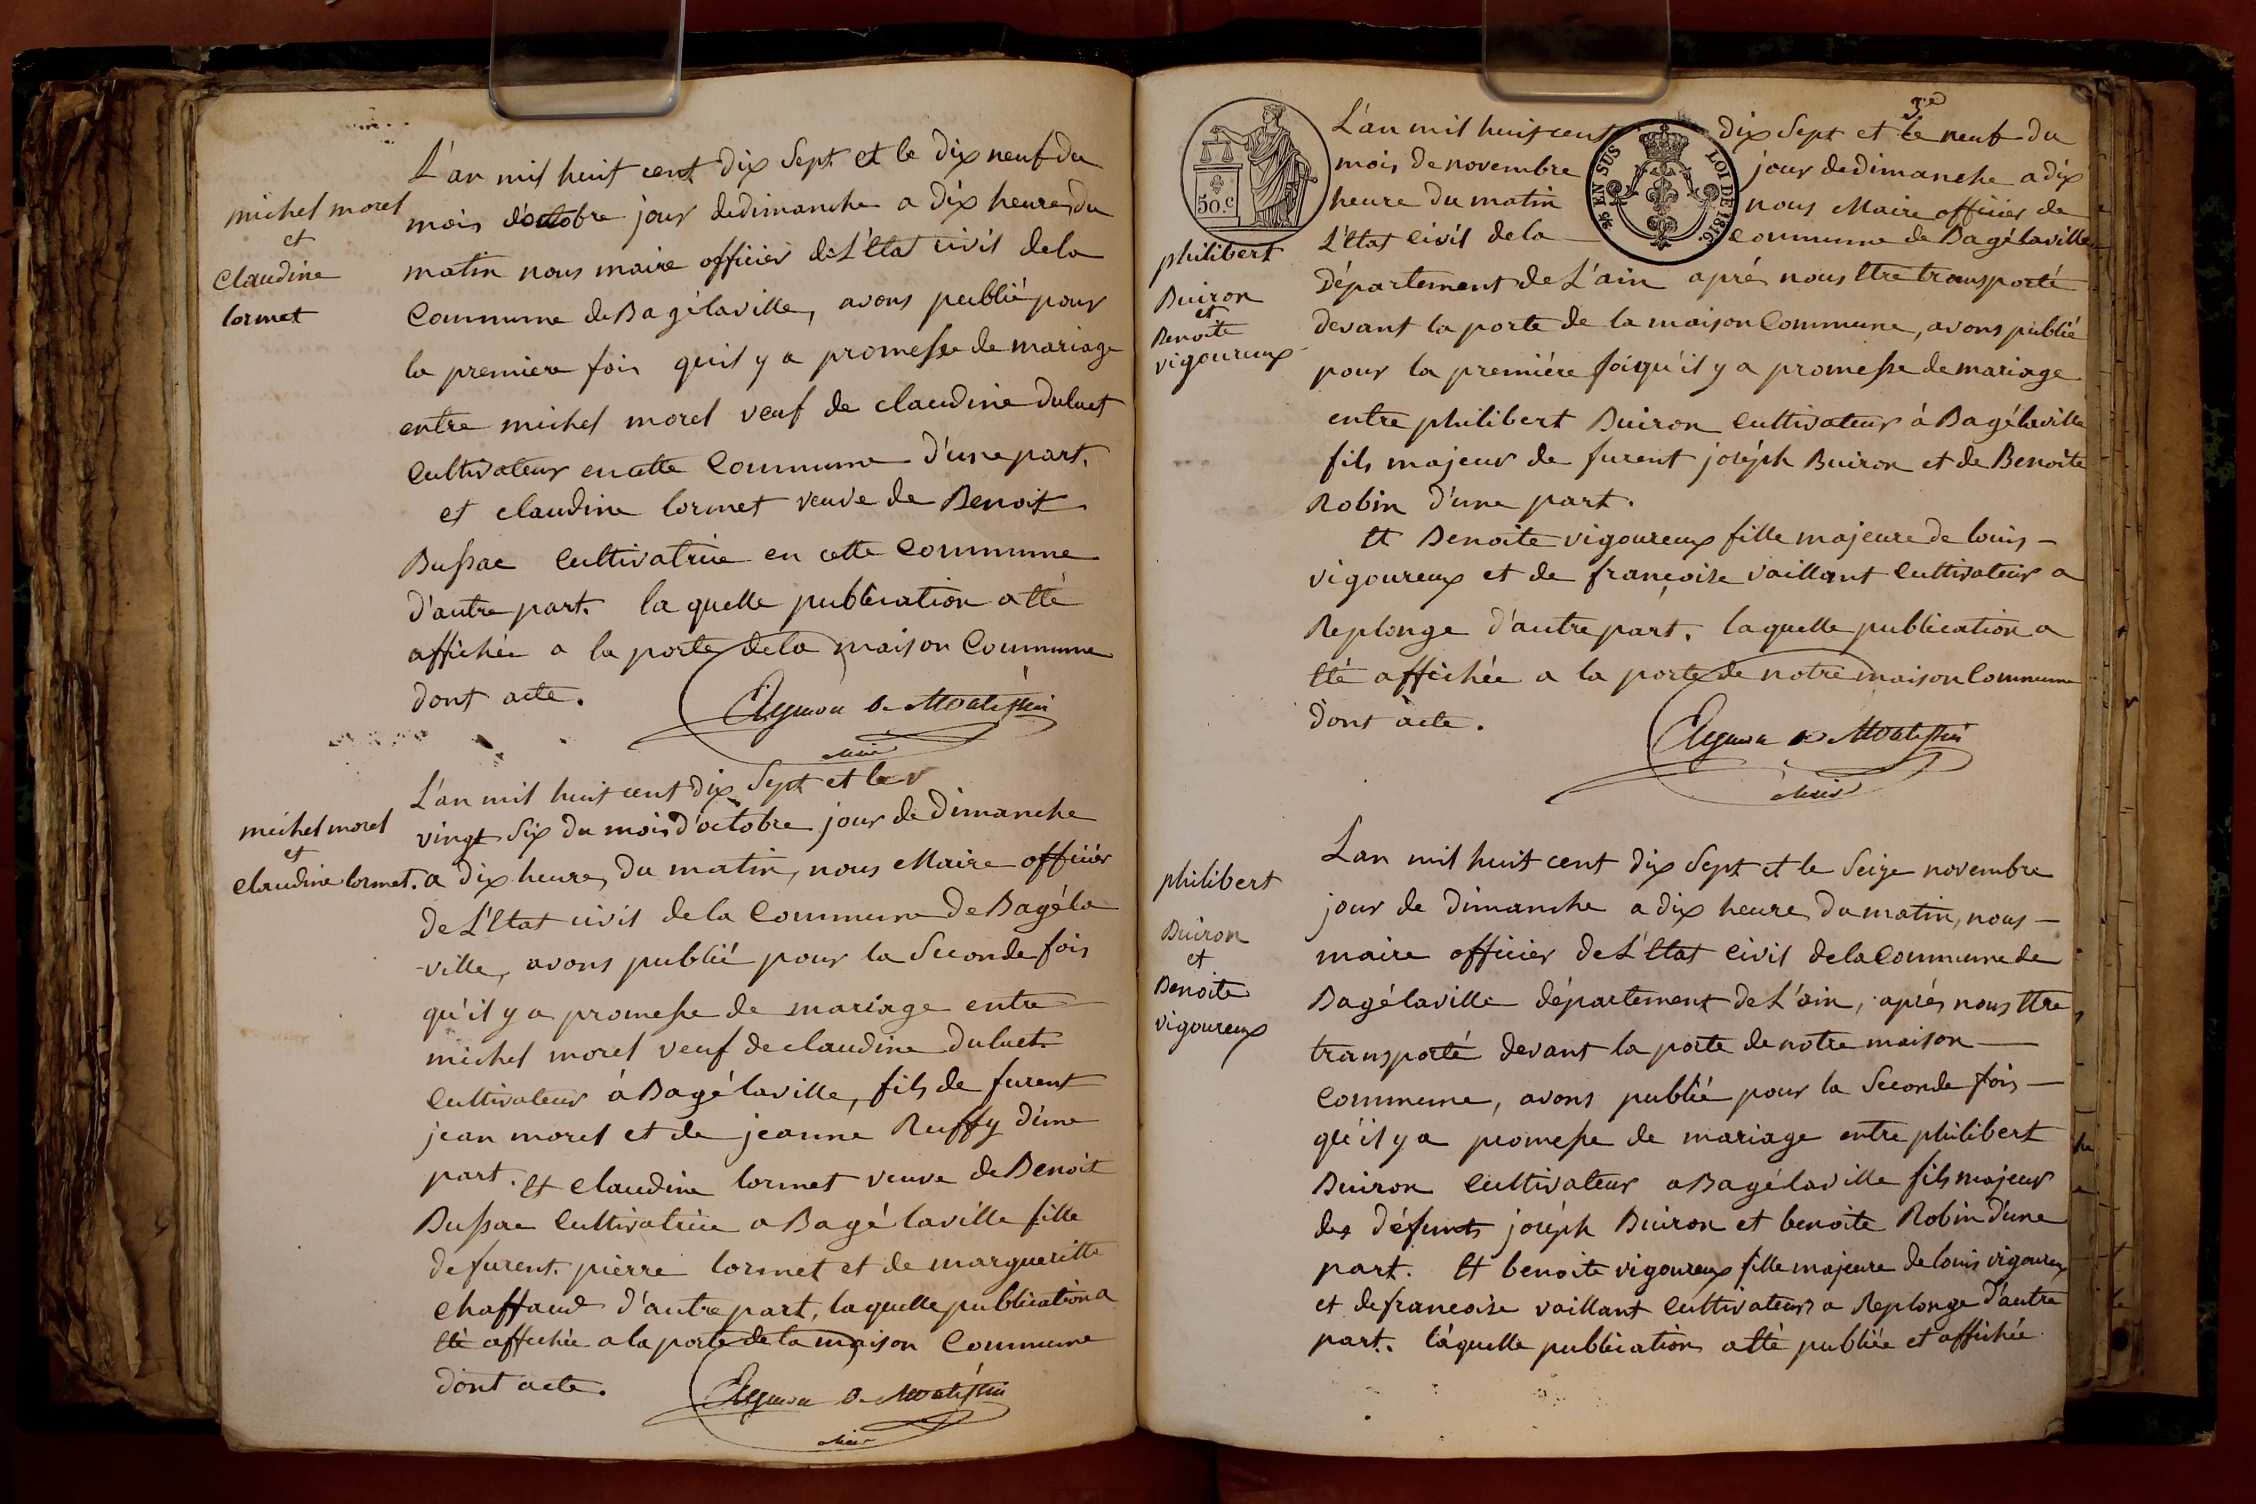 michel morel
et
Claudine
lormet
L'an mil huit cent dix Sept et le dix neuf du
mois d'octobre jour de dimanche a dix heures du
matin nous maire officier de L'Etat civil de la
Commune de Bagélaville, avons publié pour
la premiere fois qu'il y a promesse de mariage
entre michel morel veuf de claudine Duluet
Cultivateur en cette Commune d'une part.
et claudine lormet veuve de Benoit
Bussac Cultivatrice en cette Commune
d'autre part. la quelle publication a Eté
affichée a la porte de la maison Commune
dont acte.
Maire
michel morel
et
Claudine lormet.
L'an mil huit cent dix Sept et le
vingt Six du mois d'octobre jour de Dimanche
a dix heures du matin, nous Maire officier
de L'Etat civil de la Commune de Bagéla
-ville, avons publié pour la Seconde fois
qu'il y a promesse de mariage entre
michel morel veuf de claudine Duluet
Cultivateur à Bagélaville, fils de furent
jean morel et de jeanne Ruffy d'une
part. Et Claudine lormet veuve de Benoit
Bussac Cultivatrice a Bagélaville fille
de furent pierre lormet et de margueritte
Chaffaud d'autre part, laquelle publication a
Eté affichée a la porte de la maison Commune
dont acte.
Maire
3e
50.c
25 EN SUS LOI DE 1816.
philibert
Buiron
et
Benoite
vigoureux
L'an mil huit cent dix Sept et le neuf du
mois de novembre jour de dimanche a dix
heure du matin nous Maire officier de
L'Etat Civil de la Commune de Bagélaville
Département de L'ain aprés nous Etre transporté
devant la porte de la maison Commune, avons publié
pour la premiére foi qu'il y a promesse de mariage
entre philibert Buiron Cultivateur à Bagélaville
fils majeur de furent joséph Buiron et de Benoite
Robin d'une part.
Et Benoite vigoureux fille majeure de louis -
vigoureux et de françoise vaillant Cultivateur a
Replonge d'autre part. laquelle publication a
Eté affichée a la porte de notre maison Commune
dont acte.
Maire
philibert
Buiron
et
Benoite
vigoureux
Lan mil huit cent dix Sept et le Seize novembre
jour de dimanche a dix heure du matin, nous -
maire officier de L'Etat Civil de la Commune de
Bagélaville département de L'ain, aprés nous Etre
transporté devant la porte de notre maison -
Commune, avons publié pour la Seconde fois -
qu'il y a promesse de mariage entre philibert
Buiron Cultivateur a Bagélaville fils majeur
des défunts joséph Buiron et benoite Robin d'une
part. Et benoite vigoureux fille majeure de louis vigoureux
et de francoise vaillant Cultivateurs a Replonge d'autre
part. laquelle publication a Eté publiée et affichée